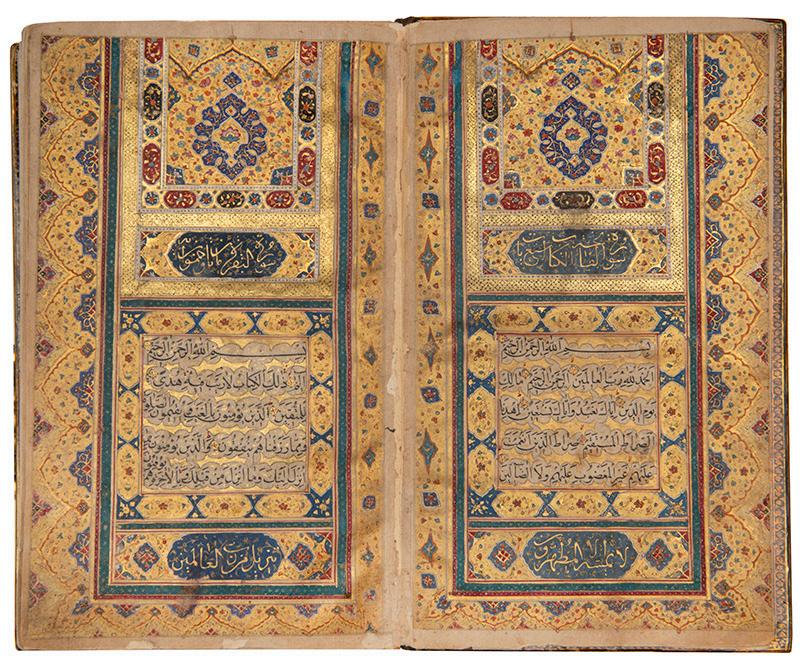 سورة الكتاب
بسم الله الرحمن الرحيم
الحمد لله رب العالمين الرحمن الرحيم مالك
يوم الدين اياك نعبد واياك نستعين اهدنا
الصراط المستقيم صراط الذين انعمت
عليهم غير المغضوب عليهم ولا الضالين
لا يمسه الا المطهرون
سورة البقرة
بسم الله الرحمن الرحيم
الم ذلك الكتاب لا ريب فيه هدى
للمتقين الذين يؤمنون بالغيب ويقيمون الصلوة
ومما رزقناهم ينفقون والذين يؤمنون بما
انزل اليك وما انزل من قبلك وبالاخرة هم
يوقنون
تنزيل من رب العالمين